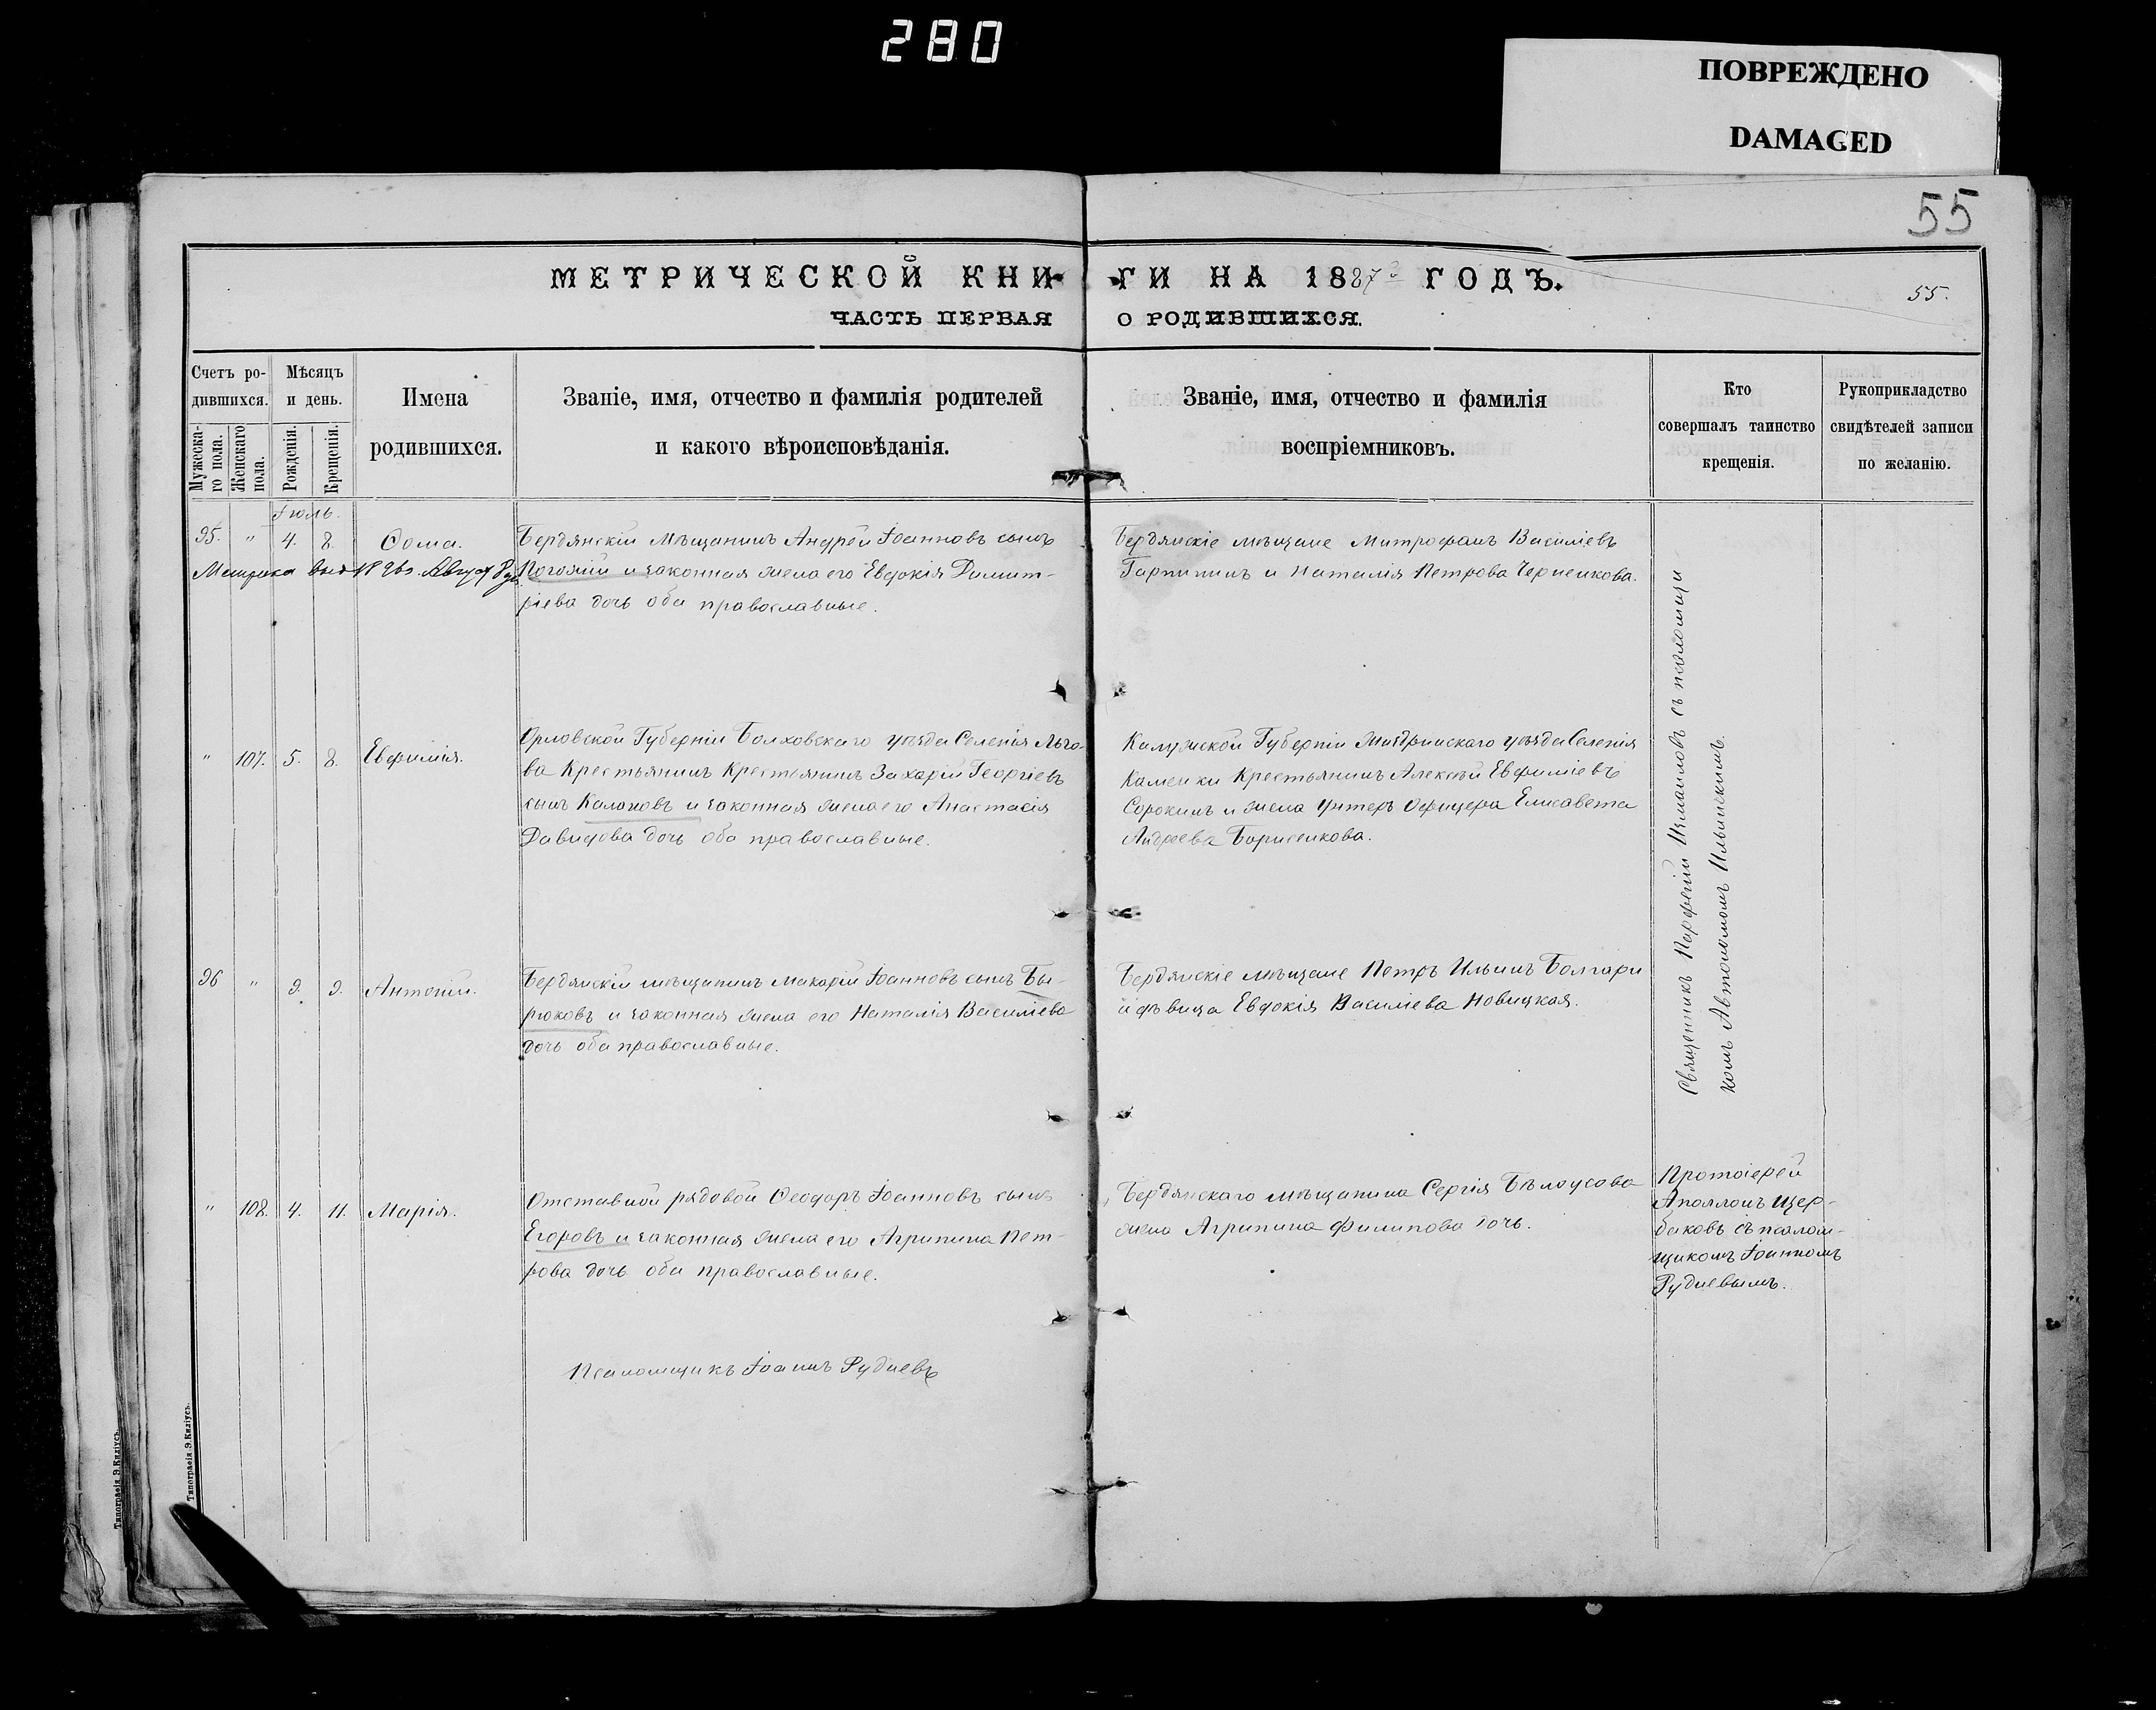 280
ПОВРЕЖДЕНО
DAMAGED
55
МЕТРИЧЕСКОЙ КНИГИ НА 1887 ГОДЪ.
55.
ЧАСТЬ ПЕРВАЯ О РОДИВШИХСЯ.
Счетъ родившихся.
Мужескаго пола.
Женскаго пола.
Мѣсяцъ и день.
Рожденія.
Крещенія.
Имена
родившихся.
Званіе, имя, отчество и фамилія родителей
и какого вѣроисповѣданія.
Званіе, имя, отчество и фамилія
воспріемниковъ.
Кто
совершалъ таинство
крещенія.
Рукоприкладство
свидѣтелей записи
по желанію.
Іюль.
95. " 4. 8. Ѳома.
Метрика выд
Бердянскій Мѣщанинъ Андрей Іоанновъ сынъ
и законная жена его Евдокія Димит-
ріева дочь оба православные.
Бердянскіе мѣщане Митрофанъ Василіевъ
и Наталія Петрова Черненкова.
" 107. 5. 8. Евфимія.
Орловской Губерніи Болховскаго уѣзда Селенія Льго-
ва Крестьянинъ Крестьянинъ Захарій Георгіевъ
сынъ Калаковъ и законная жена его Анастасія
Давидова дочь оба православные.
Калужской Губерніи уѣзда Селенія
Каменки Крестьянинъ Алексѣй Евфиміевъ
Сорокинъ и жена унтеръ Офицера Елисавета
Андреева Борисенкова.
96 " 9. 9. Антоній.
Бердянскій мѣщанинъ Макарій Іоанновъ сынъ Бы-
рюковъ и законная жена его Наталія Василіева
дочь оба православные.
Бердянскіе мѣщане Петръ Ильинъ Болгари
и дѣвица Евдокія Василіева Новицкая.
Священникъ Парѳеній Измаиловъ съ псаломщи
комъ Автономомъ Ильинскимъ.
" 108. 4. 11. Марія.
Отставной рядовой Ѳеодоръ Іоанновъ сынъ
Егоровъ и законная жена его Агрипина Пет-
рова дочь оба православные.
Бердянскаго мѣщанина Сергія Бѣлоусова
жена Агрипина Филипова дочь.
Протоіерей
Аполлонъ Щер-
баковъ съ псалом-
щикомъ Іоанномъ
Рудневымъ.
Псаломщикъ Іоаннъ Рудневъ
Типографія Э.Килiусъ.
Типографія Э.Килiусъ.